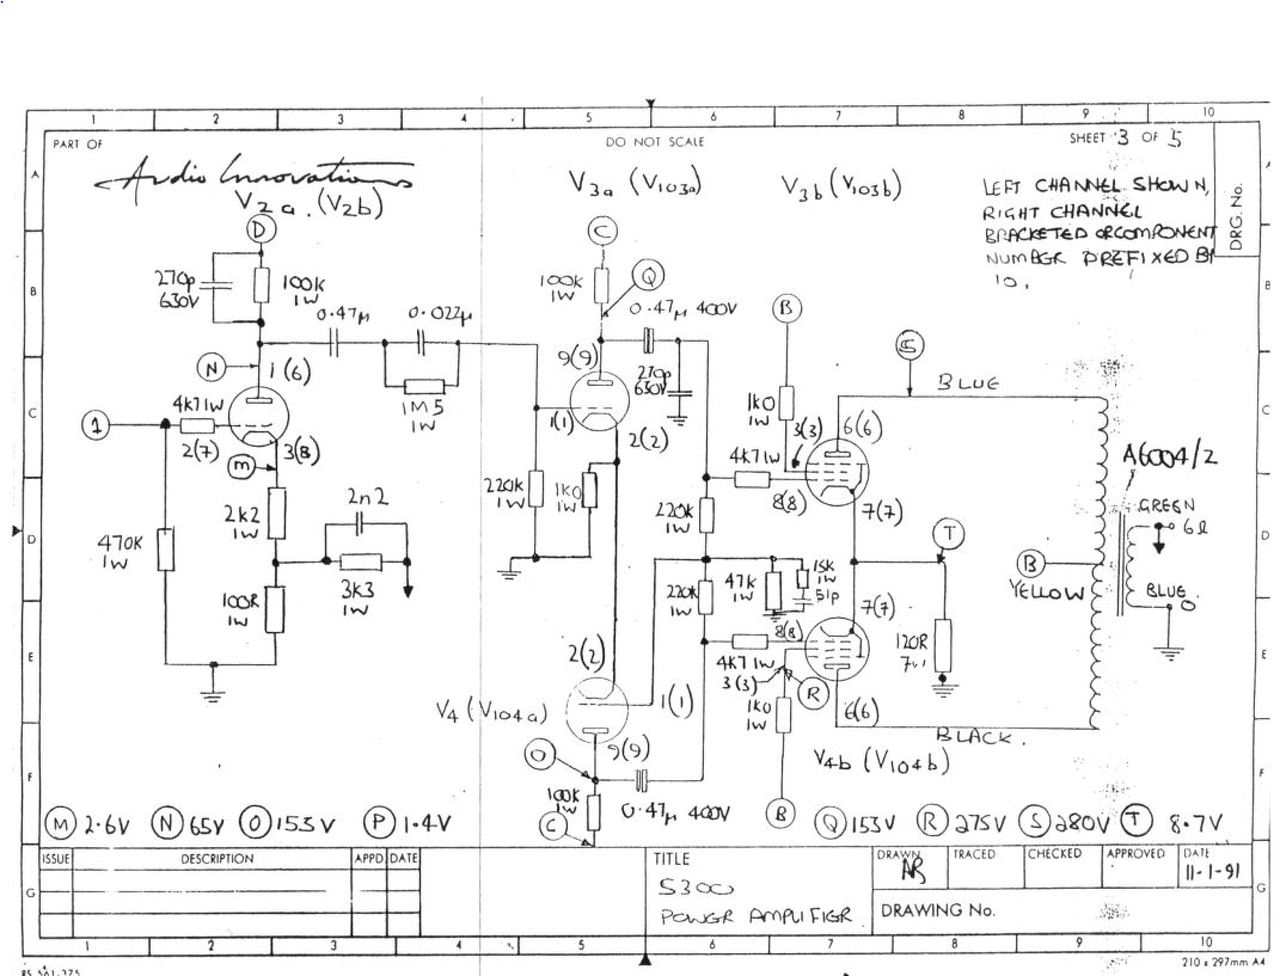 1 2 3 4 5 6 7 8 9 10
PART OF
DO NOT SCALE
SHEET 3 OF 5
DRG. No.
Audio Innovations
V2a. (V2b)
V3a (V103a)
V3b (V103b)
LEFT CHANNEL SHOWN,
RIGHT CHANNEL
BRACKETED OR COMPONENT
NUMBER PREFIXED BY
10.
A
B
C
D
E
F
G
D
270p
630V
100K
1W
0.47µ
0.022µ
N
1(6)
1M5
1W
1
4K7 1W
2(7)
3(8)
M
2k2
1W
2n2
470K
1W
3k3
1W
100R
1W
C
100K
1W
Q
0.47µ 400V
9(9)
270p
630V
1(1)
2(2)
220K
1W
1K0
1W
220K
1W
B
1K0
1W
3(3)
6(6)
4K7 1W
8(8)
7(7)
S
BLUE
A6004/2
GREEN
6Ω
T
B
YELLOW
BLUE
0
47K
1W
15K
1W
51p
220K
1W
7(7)
8(8)
4K7 1W
3(3)
R
120R
1K0
1W
6(6)
BLACK.
2(2)
1(1)
V4 (V104a)
9(9)
O
100K
1W
C
0.47µ 400V
B
V4b (V104b)
M 2.6V N 65V O 153V P 1.4V
Q 153V R 275V S 280V T 8.7V
ISSUE DESCRIPTION APPD DATE
TITLE
S300
POWER AMPLIFIER
DRAWN TRACED CHECKED APPROVED DATE
11-1-91
DRAWING No.
1 2 3 4 5 6 7 8 9 10
210 x 297mm A4